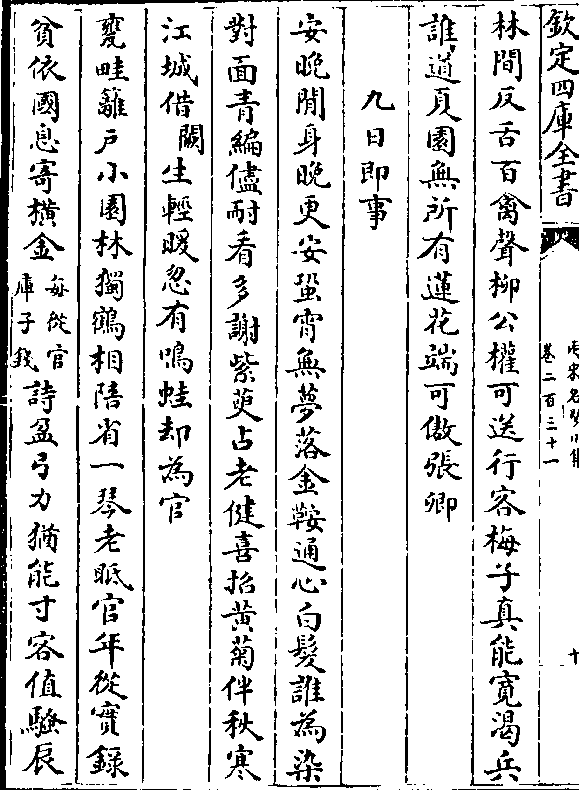 欽定四庫全書
兩宋名賢小集
卷二百三十一
十
林間反舌百禽聲柳公權可送行客梅子真能寬渴兵
誰道頁園無所有蓮花端可傲張卿
九日即事
安晚閒身晚更安蛩宵無夢落金鞍通心白髮誰為染
對面青編儘耐看多謝紫萸占老健喜招黃菊伴秋寒
江城借闕生輕暖忽有鳴蛙却為官
甕畦籬戶小園林獨鶴相陪省一琴老眡官年從實錄
貧依國息寄橫金每從官庫子錢詩盈弓力猶能寸客值騷辰